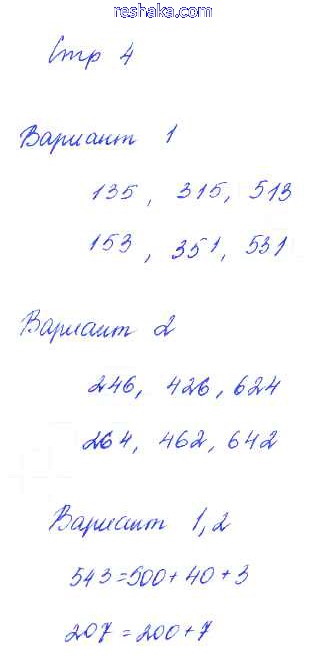 reshaka.com
Стр 4
Вариант 1
135, 315, 513
153, 351, 531
Вариант 2
246, 426, 624
264, 462, 642
Вариант 1,2
543=500+40+3
207=200+7